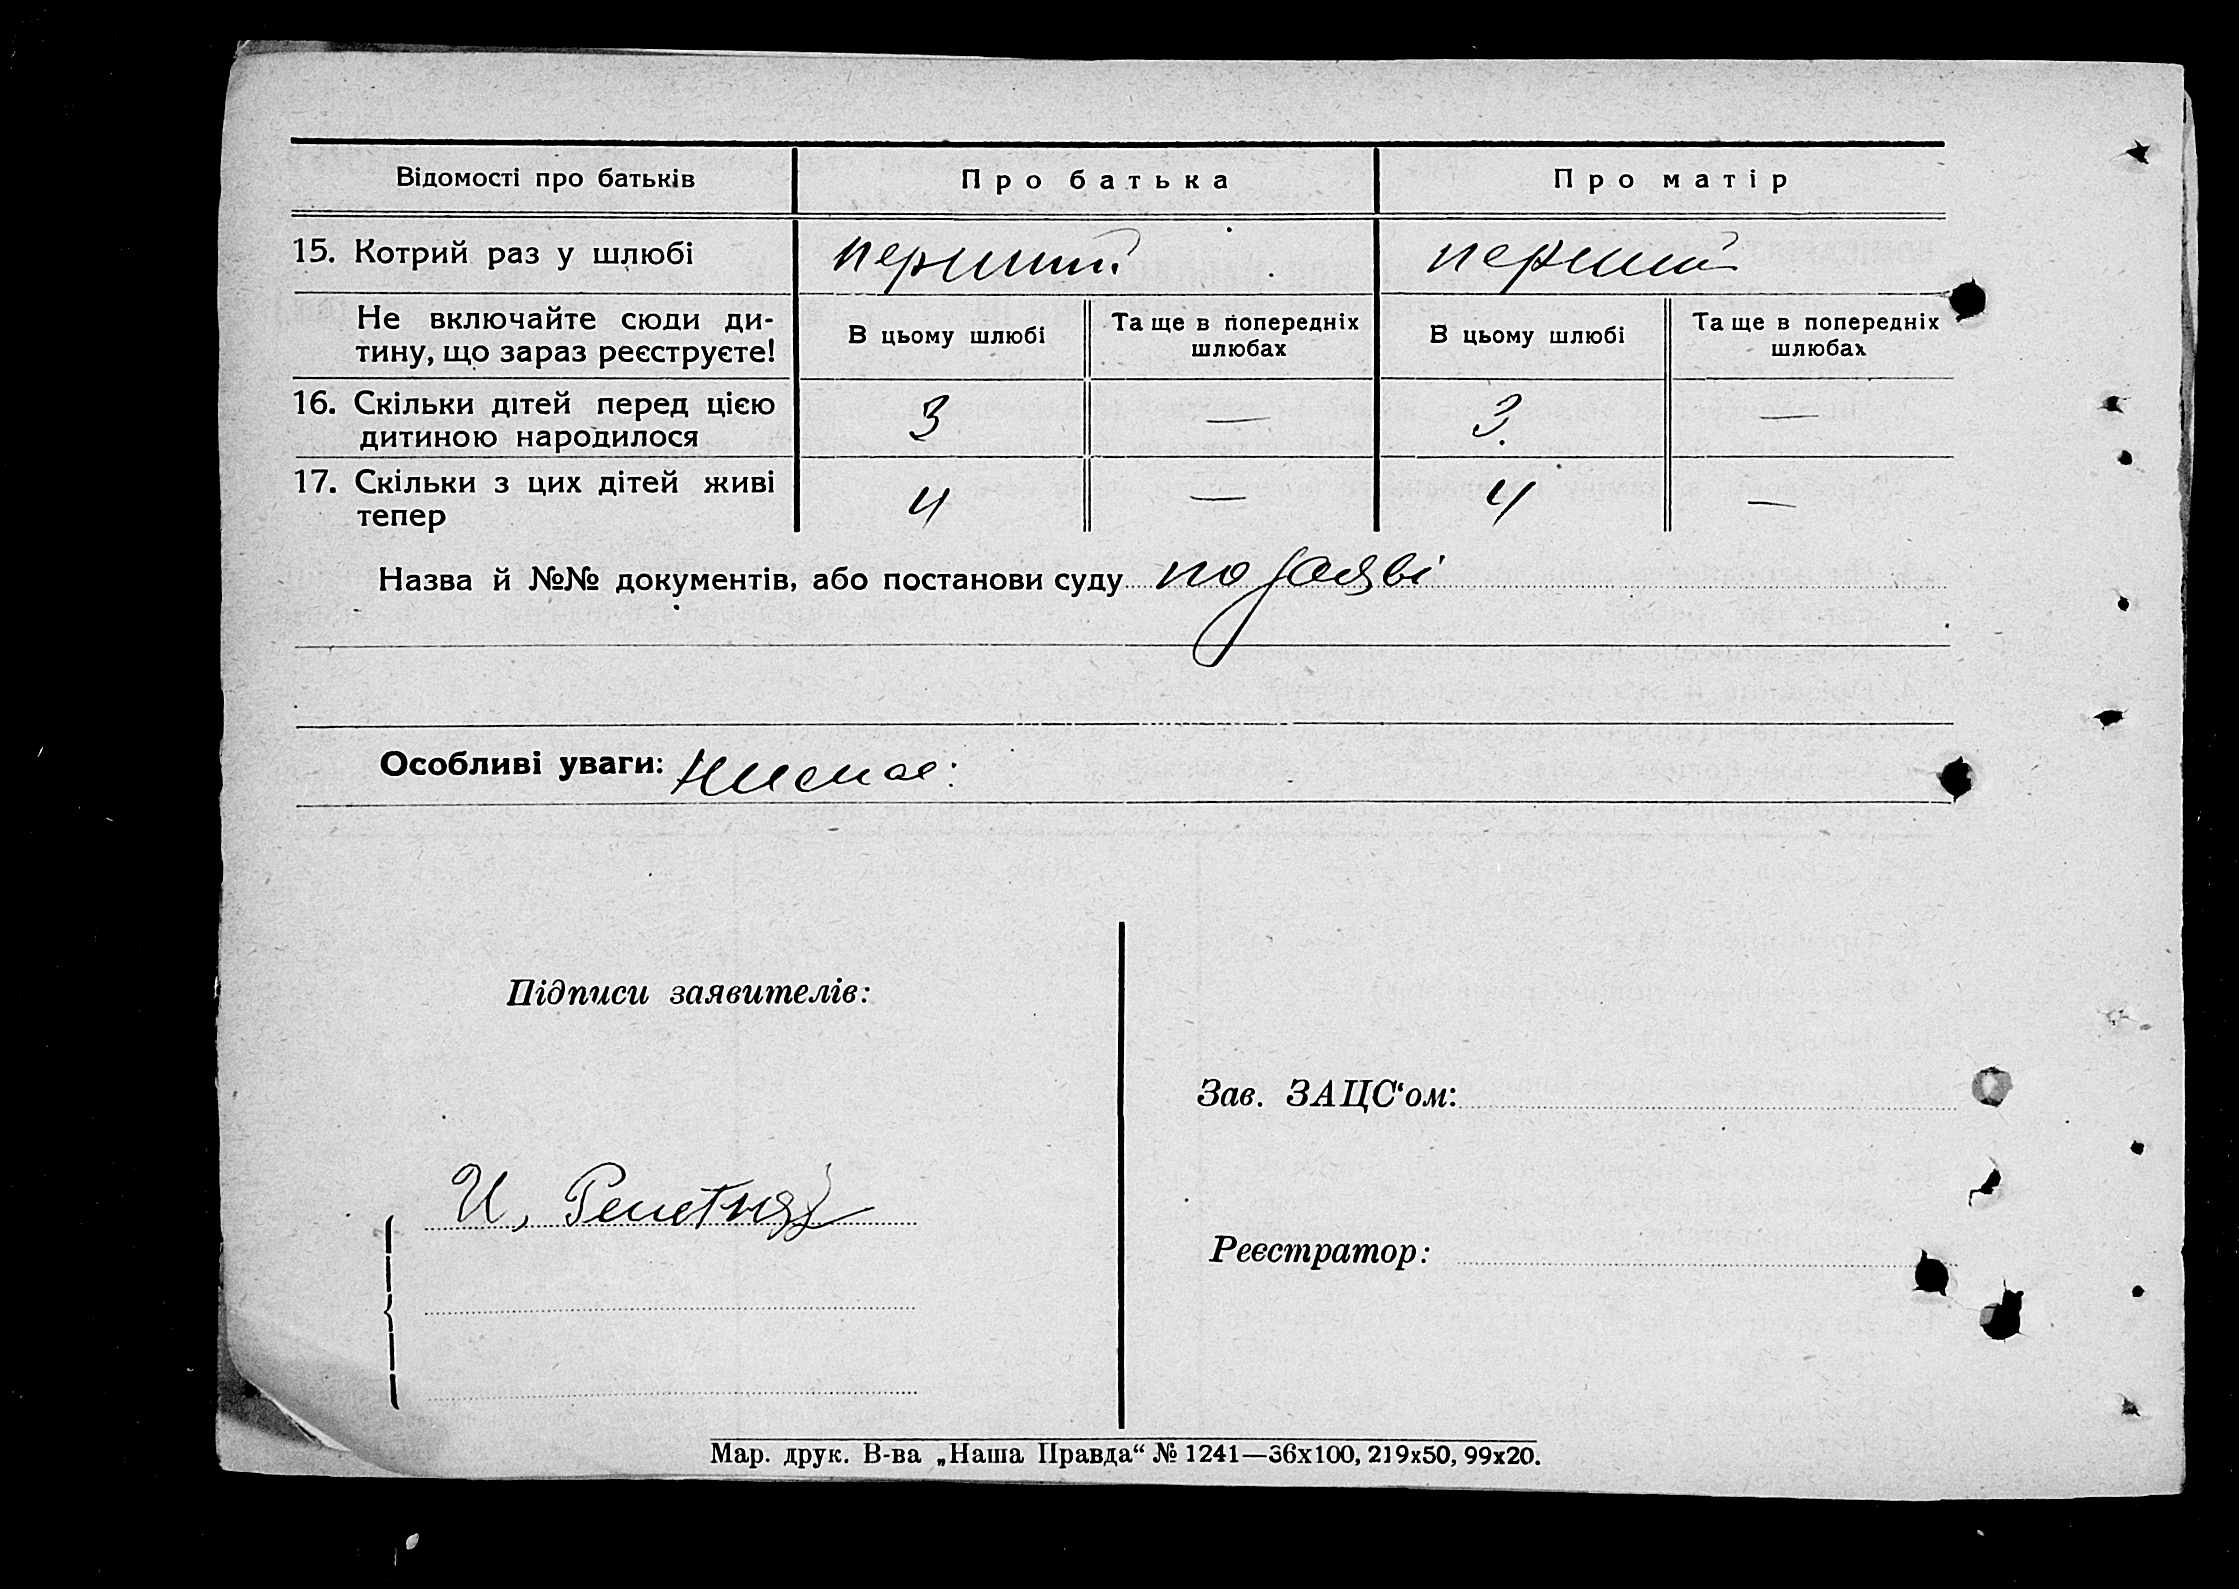 Відомості про батьків Про батька Про матір
15. Котрий раз у шлюбі перший перший
Не включайте сюди ди- В цьому шлюбі Та ще в попередніх В цьому шлюбі Та ще в попередніх
тину, що зараз реєструєте! шлюбах шлюбах
16. Скільки дітей перед цією 3 — 3 —
дитиною народилося
17. Скільки з цих дітей живі 4 — 4 —
тепер
Назва й №№ документів, або постанови суду по заяві
Особливі уваги: Немає
Підписи заявителів:
Зав. ЗАЦС‘ом:
И, Решетняк
Реєстратор:
Мар. друк. В-ва „Наша Правда“ № 1241—36х100, 219х50, 99х20.